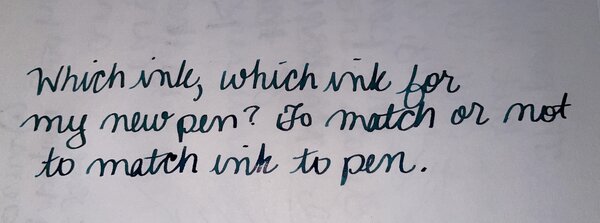 Which ink, which ink for
my new pen? To match or not
to match ink to pen.